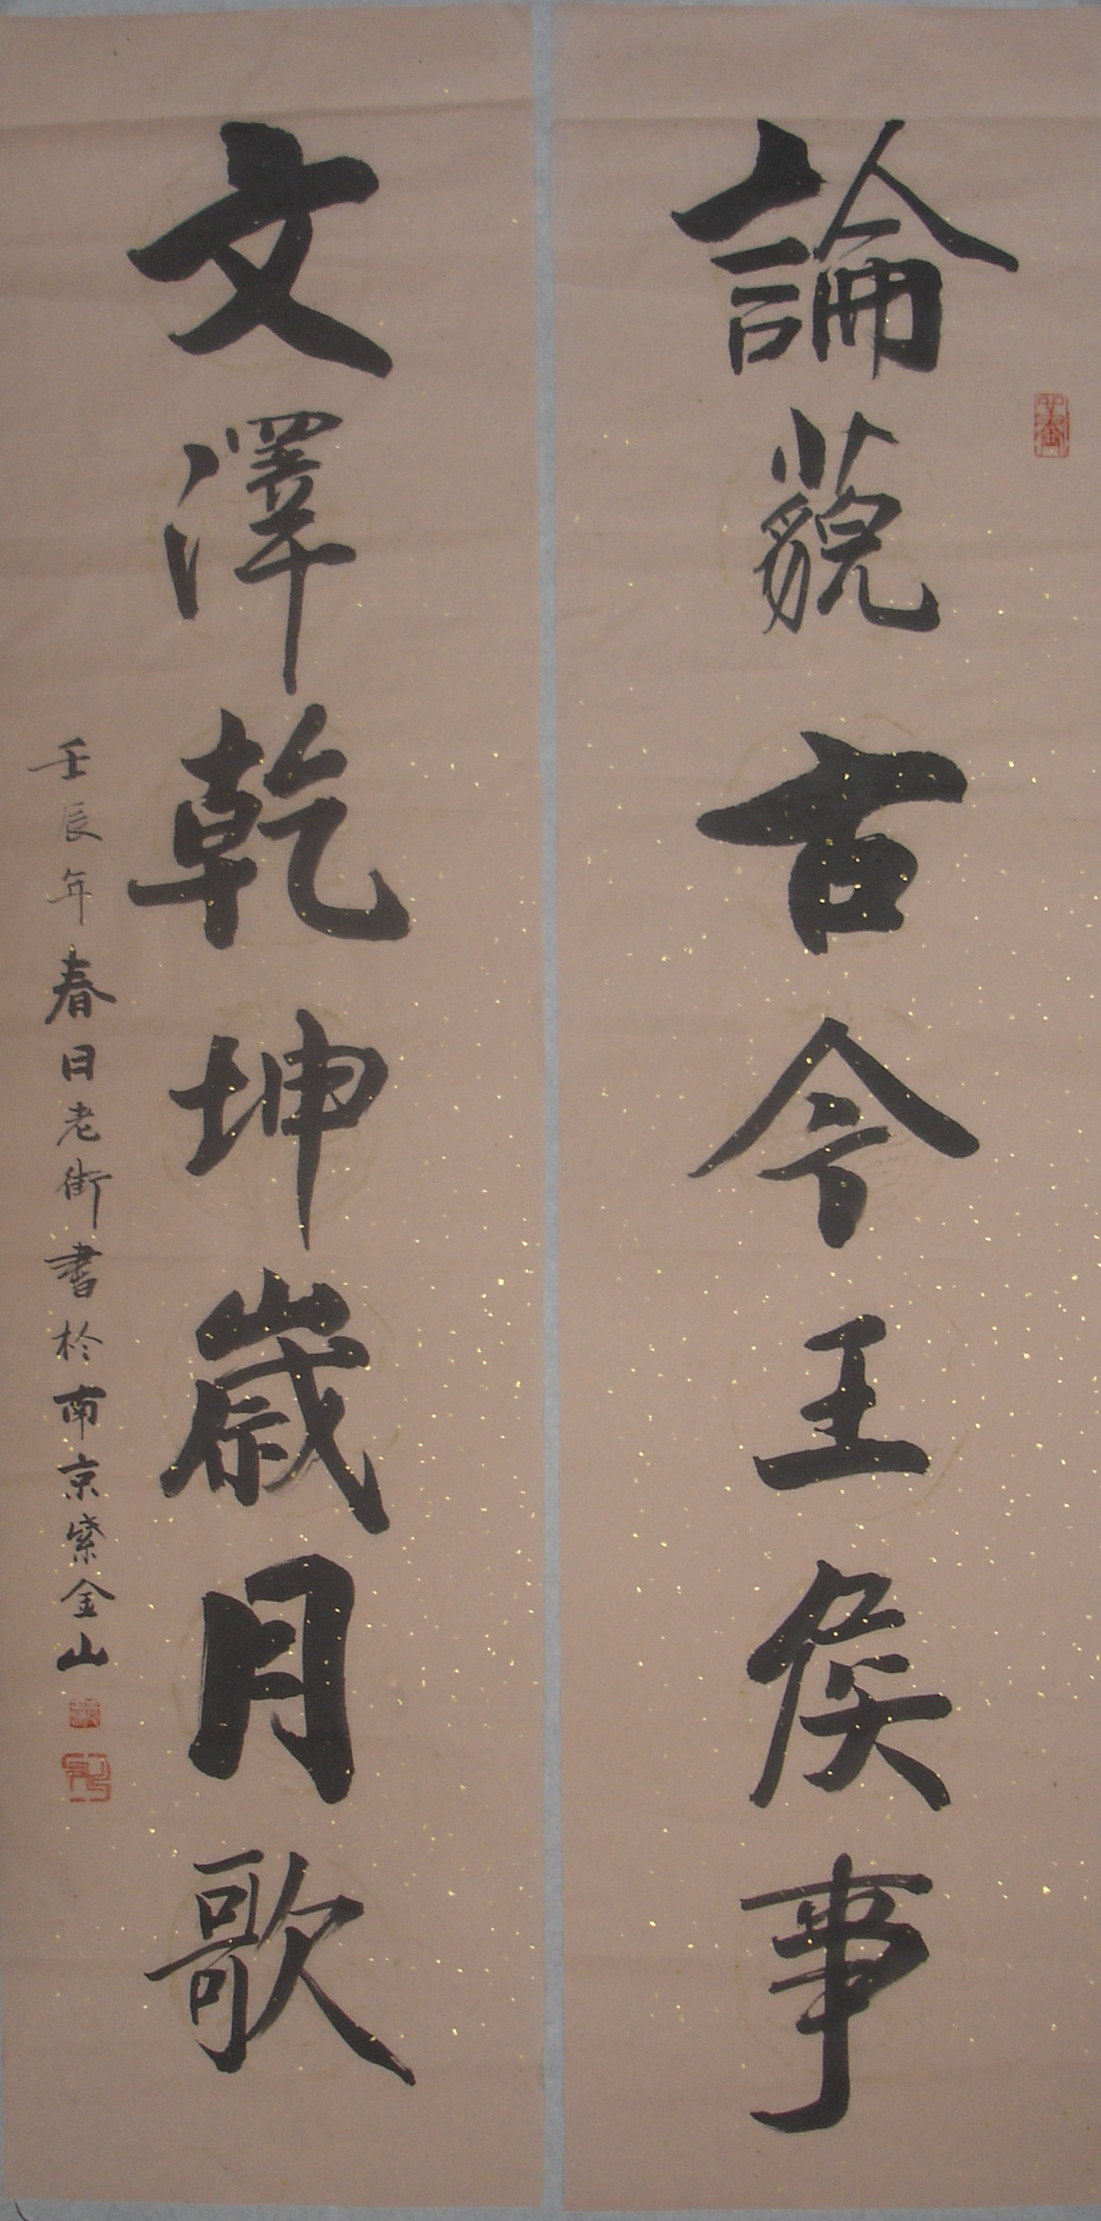 論藐古今王侯事
文澤乾坤歲月歌
壬辰年春日老街書於南京紫金山